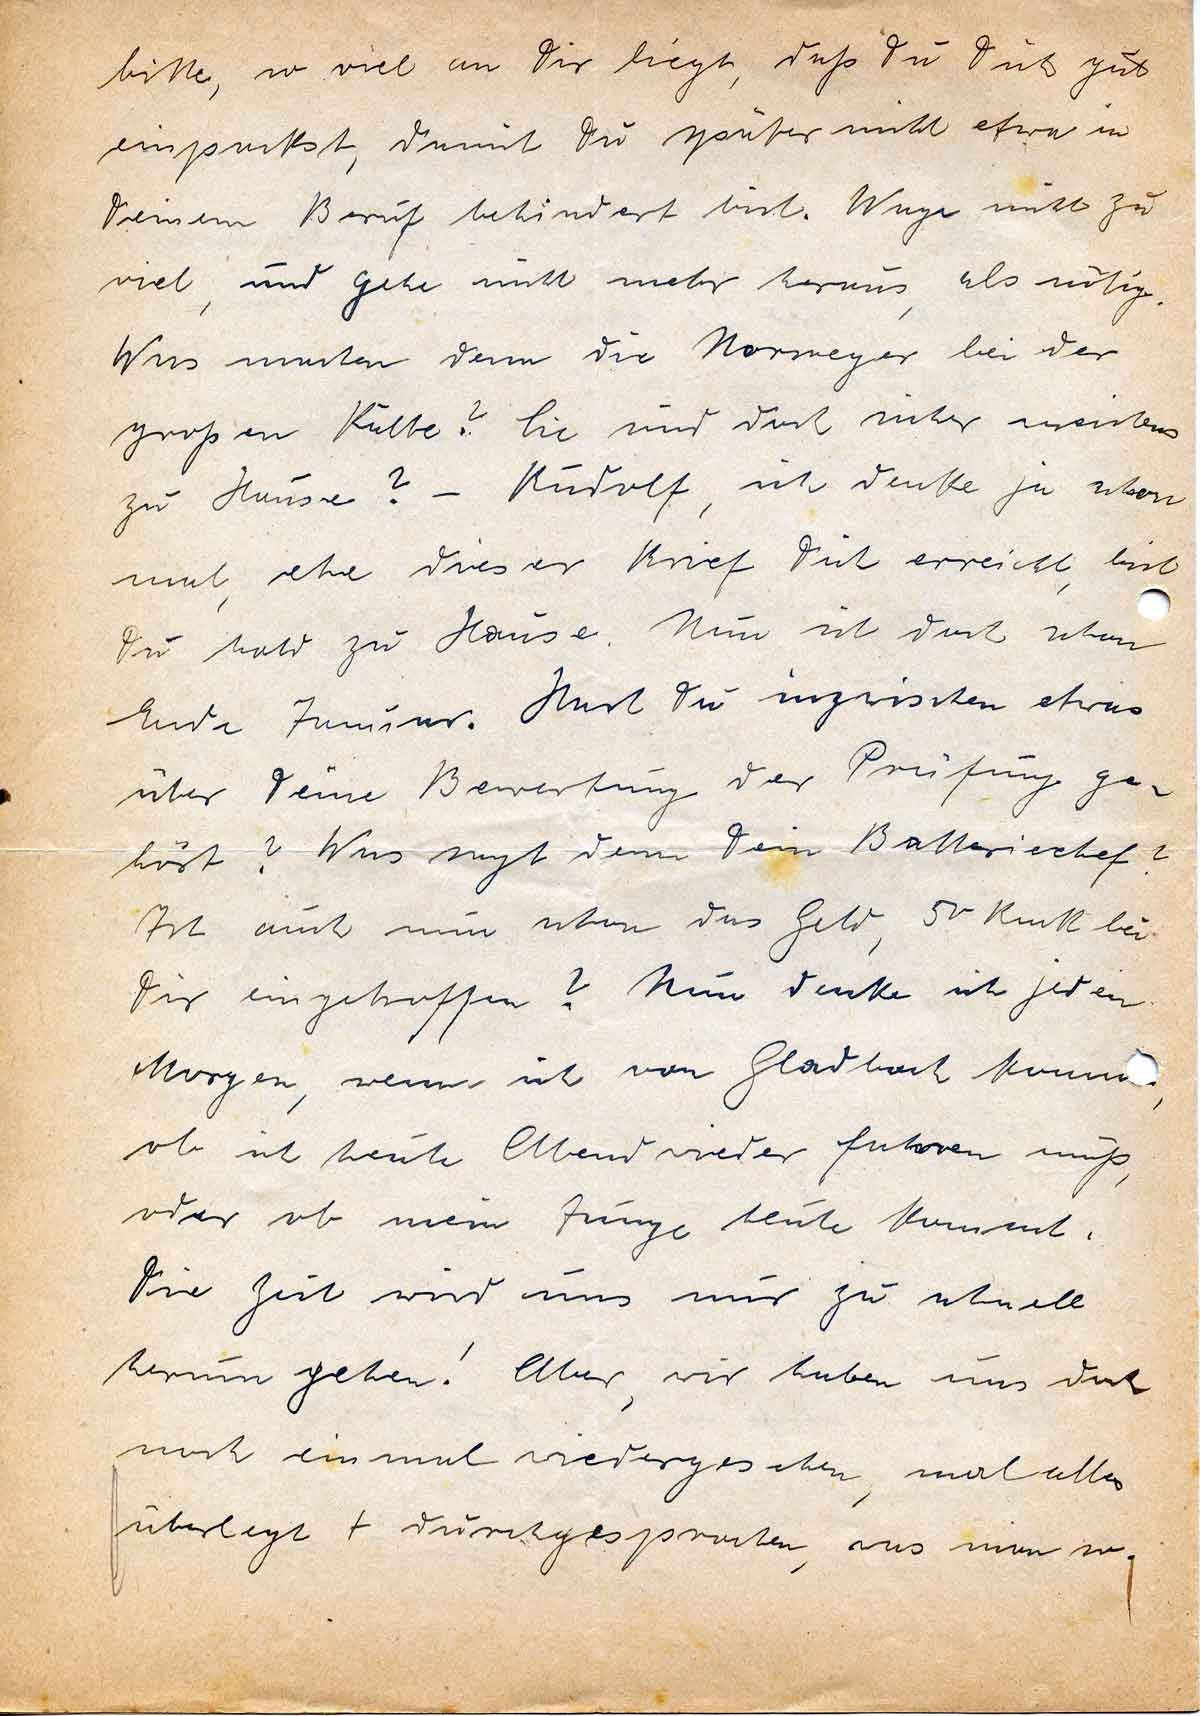 bitte, so viel an Dir liegt, daß Du Dich gut
einpackst, damit Du später nicht etwa in
Deinem Beruf behindert bist. Wage nicht zu
viel, und gehe nicht mehr heraus, als nötig.
Was machen denn die Norweger bei der
großen Kälte? Sie sind doch sicher meistens
zu Hause? – Rudolf, ich denke ja schon
mal, ehe dieser Brief Dich erreicht, bist
Du bald zu Hause. Nun ist doch schon
Ende Januar. Hast Du inzwischen etwas
über Deine Bewertung der Prüfung ge-
hört? Was sagt denn Dein Batteriechef?
Ist auch nun schon das Geld, 50 Mark bei
Dir eingetroffen? Nun denke ich jeden
Morgen, wenn ich von Gladbach komme,
ob ich heute Abend wieder fahren muß,
oder ob mein Junge heute kommt.
Die Zeit wird uns nur zu schnell
herum gehen! Aber, wir haben uns doch
noch einmal wiedergesehen, mal alles
überlegt + durchgesprochen, was man so